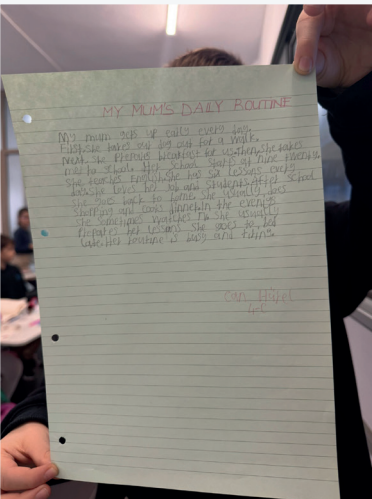 MY MUM'S DAILY ROUTINE
My mum gets up early every day.
First, she takes our dog out for a walk.
Next she prepares breakfast for us. Then, she takes
me to school. Her school starts at nine twenty.
She teaches English. She has six lessons every
day. She loves her job and students. After school
she goes back to home. She usually does
shopping and cooks dinner. In the evenings
she sometimes watches TV. She usually
prepares her lessons. She goes to bed
late. Her routine is busy and tiring.
Can
4-C